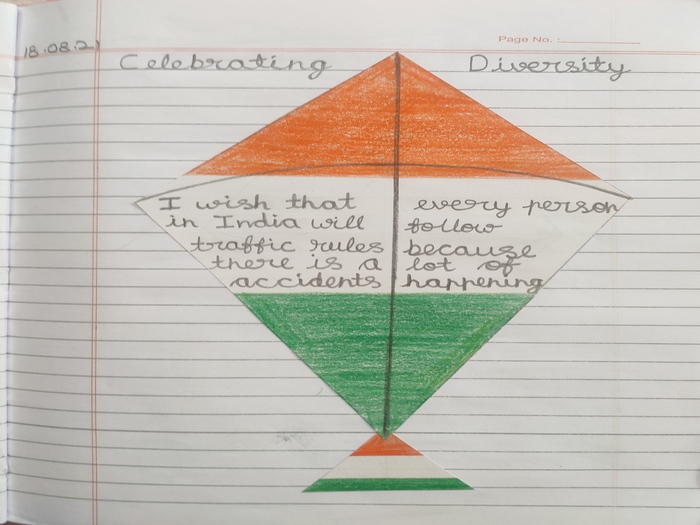 Page No. :
18.08.21
Celebrating Diversity
I wish that every person
in India will follow
traffic rules because
there is a lot of
accidents happening